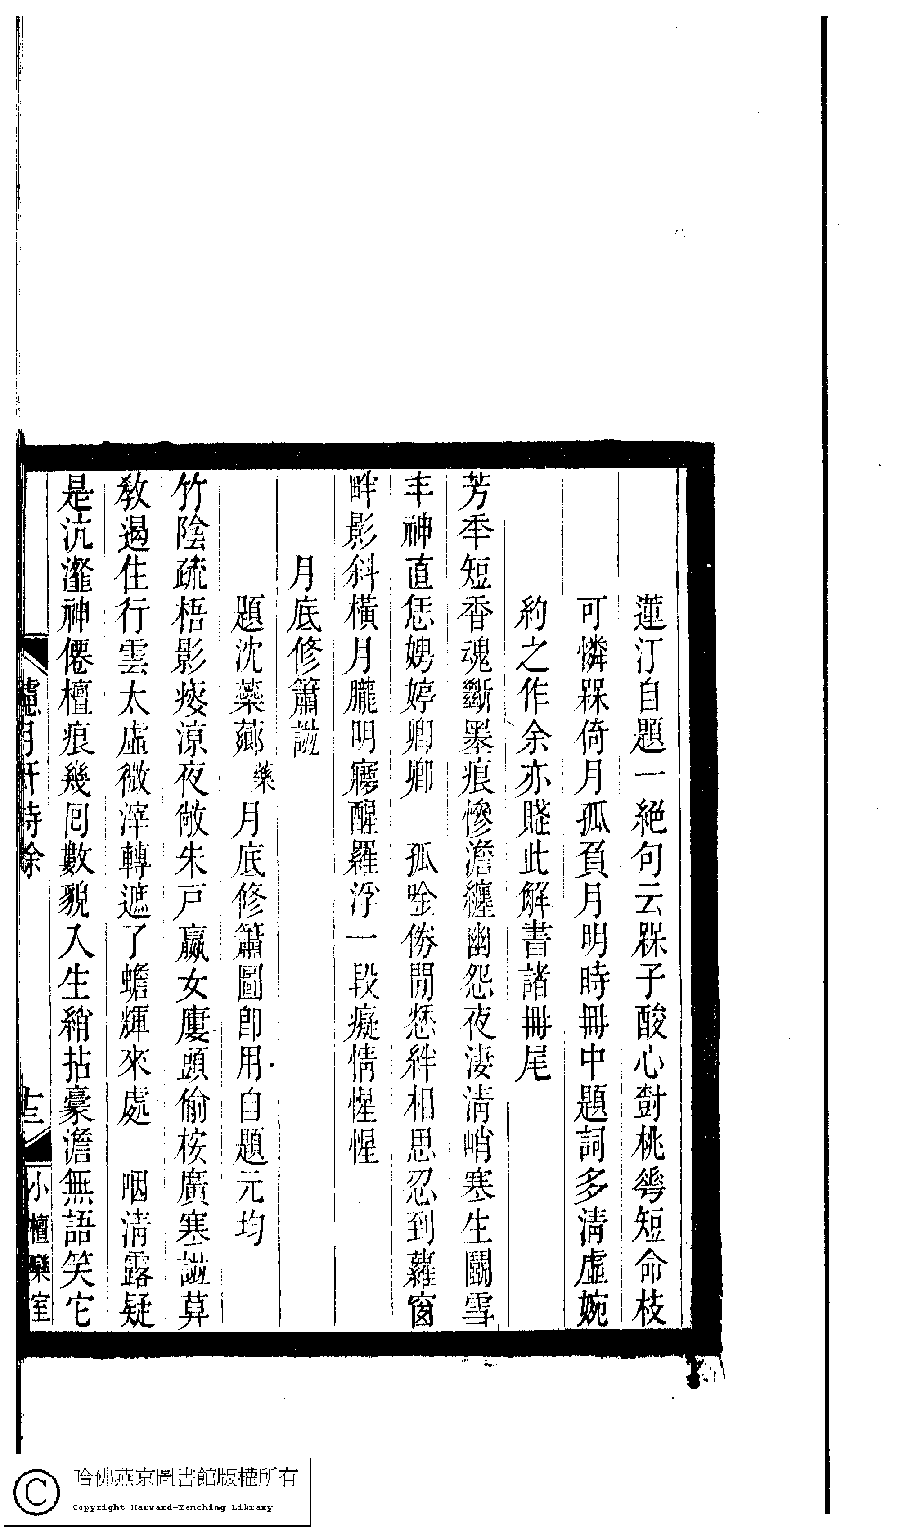 蓮汀自題一絕句云槑子酸心對桃蕚短命枝
可憐槑倚月孤負月明時冊中題詞多清虛婉
約之作余亦賤此解書諸冊尾
芳秊短香魂斷墨痕慘澹纏幽怨夜淒清峭寒生關雪
丰神直恁娉婷卿鄉　孤唫倦閒愁絆相思忍到蘿窗
畔影斜橫月朧明寤醒羅浮一段癡情惺惺
月底修簫譜
題沈藥薌藥月底修簫圖卽用自題元均
竹陰疏梧影痠涼夜敞朱戸嬴女廔頭偷桉廣寒譜算
敎遏住行雲太虛微滓轉遮了蟾輝來處　咽清露疑
是沆瀣神僊檀痕幾回數貌入生綃拈豪澹無語笑它
慮月軒詩餘
十三
小檀欒室
哈佛燕京圖書館版權所有
Copyright Harvard-Yenching Library